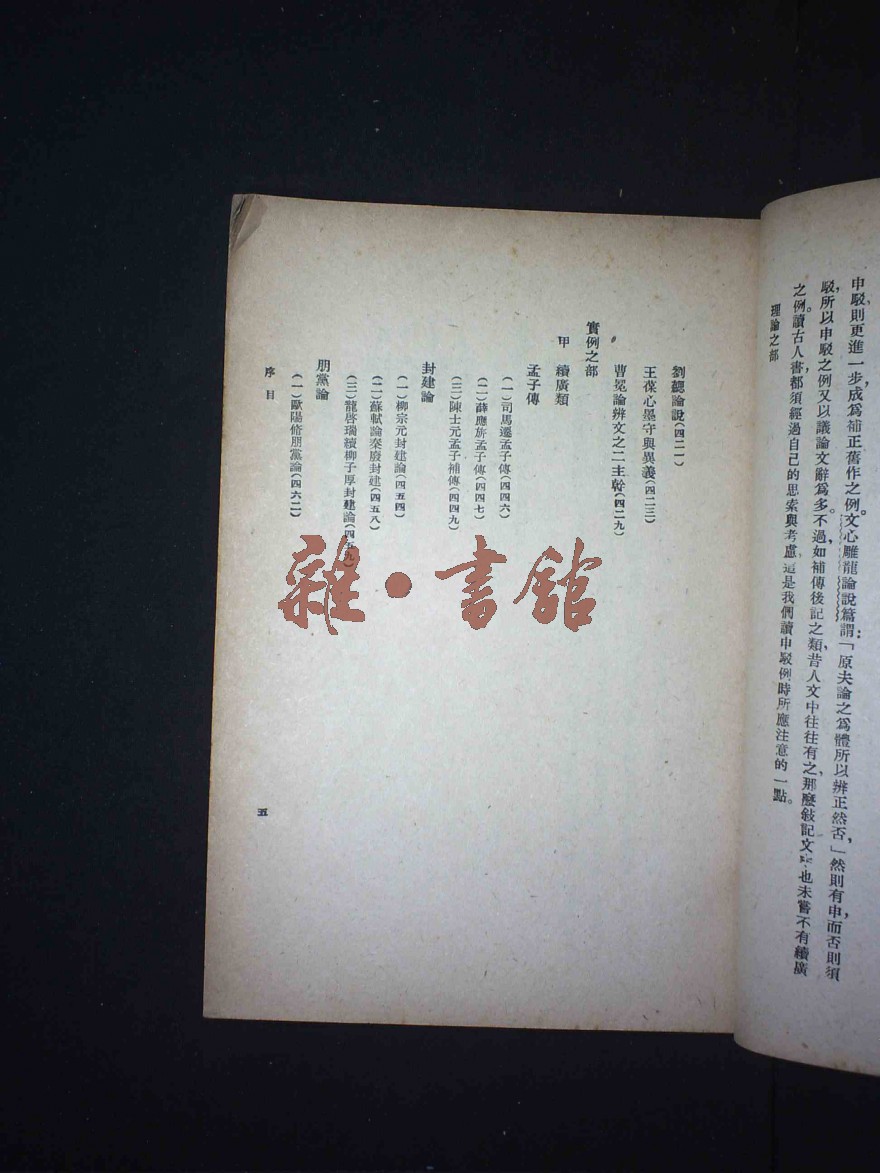 申駁則更進一步成爲補正舊作之例。文心雕龍論說篇謂:「原夫論之爲體所以辨正然否,」然則有申而否則須
駁,所以申駁之例又以議論文辭爲多。不過如補傳後記之類,昔人文中往往有之,那麽敍記文也未嘗不有續廣
之例。讀古人書都須經過自己的思索與考慮,這是我們讀申駁例時所應注意的一點。
理論之部
劉勰論說(四二一)
王葆心墨守與異義(四二三)
曹冕論辨文之二主幹(四二九)
實例之部
甲 續廣類
孟子傳
(一)司馬遷孟子傳(四四六)
(二)薛應旂孟子傳(四四七)
(三)陳士元孟子補傳(四四九)
封建論
(一)柳宗元封建論(四五四)
(二)蘇軾論秦廢封建(四五八)
(三)龍啓瑞續柳子厚封建論(四五九)
朋黨論
(一)歐陽脩朋黨論(四六二)
序目
五
雜·書館